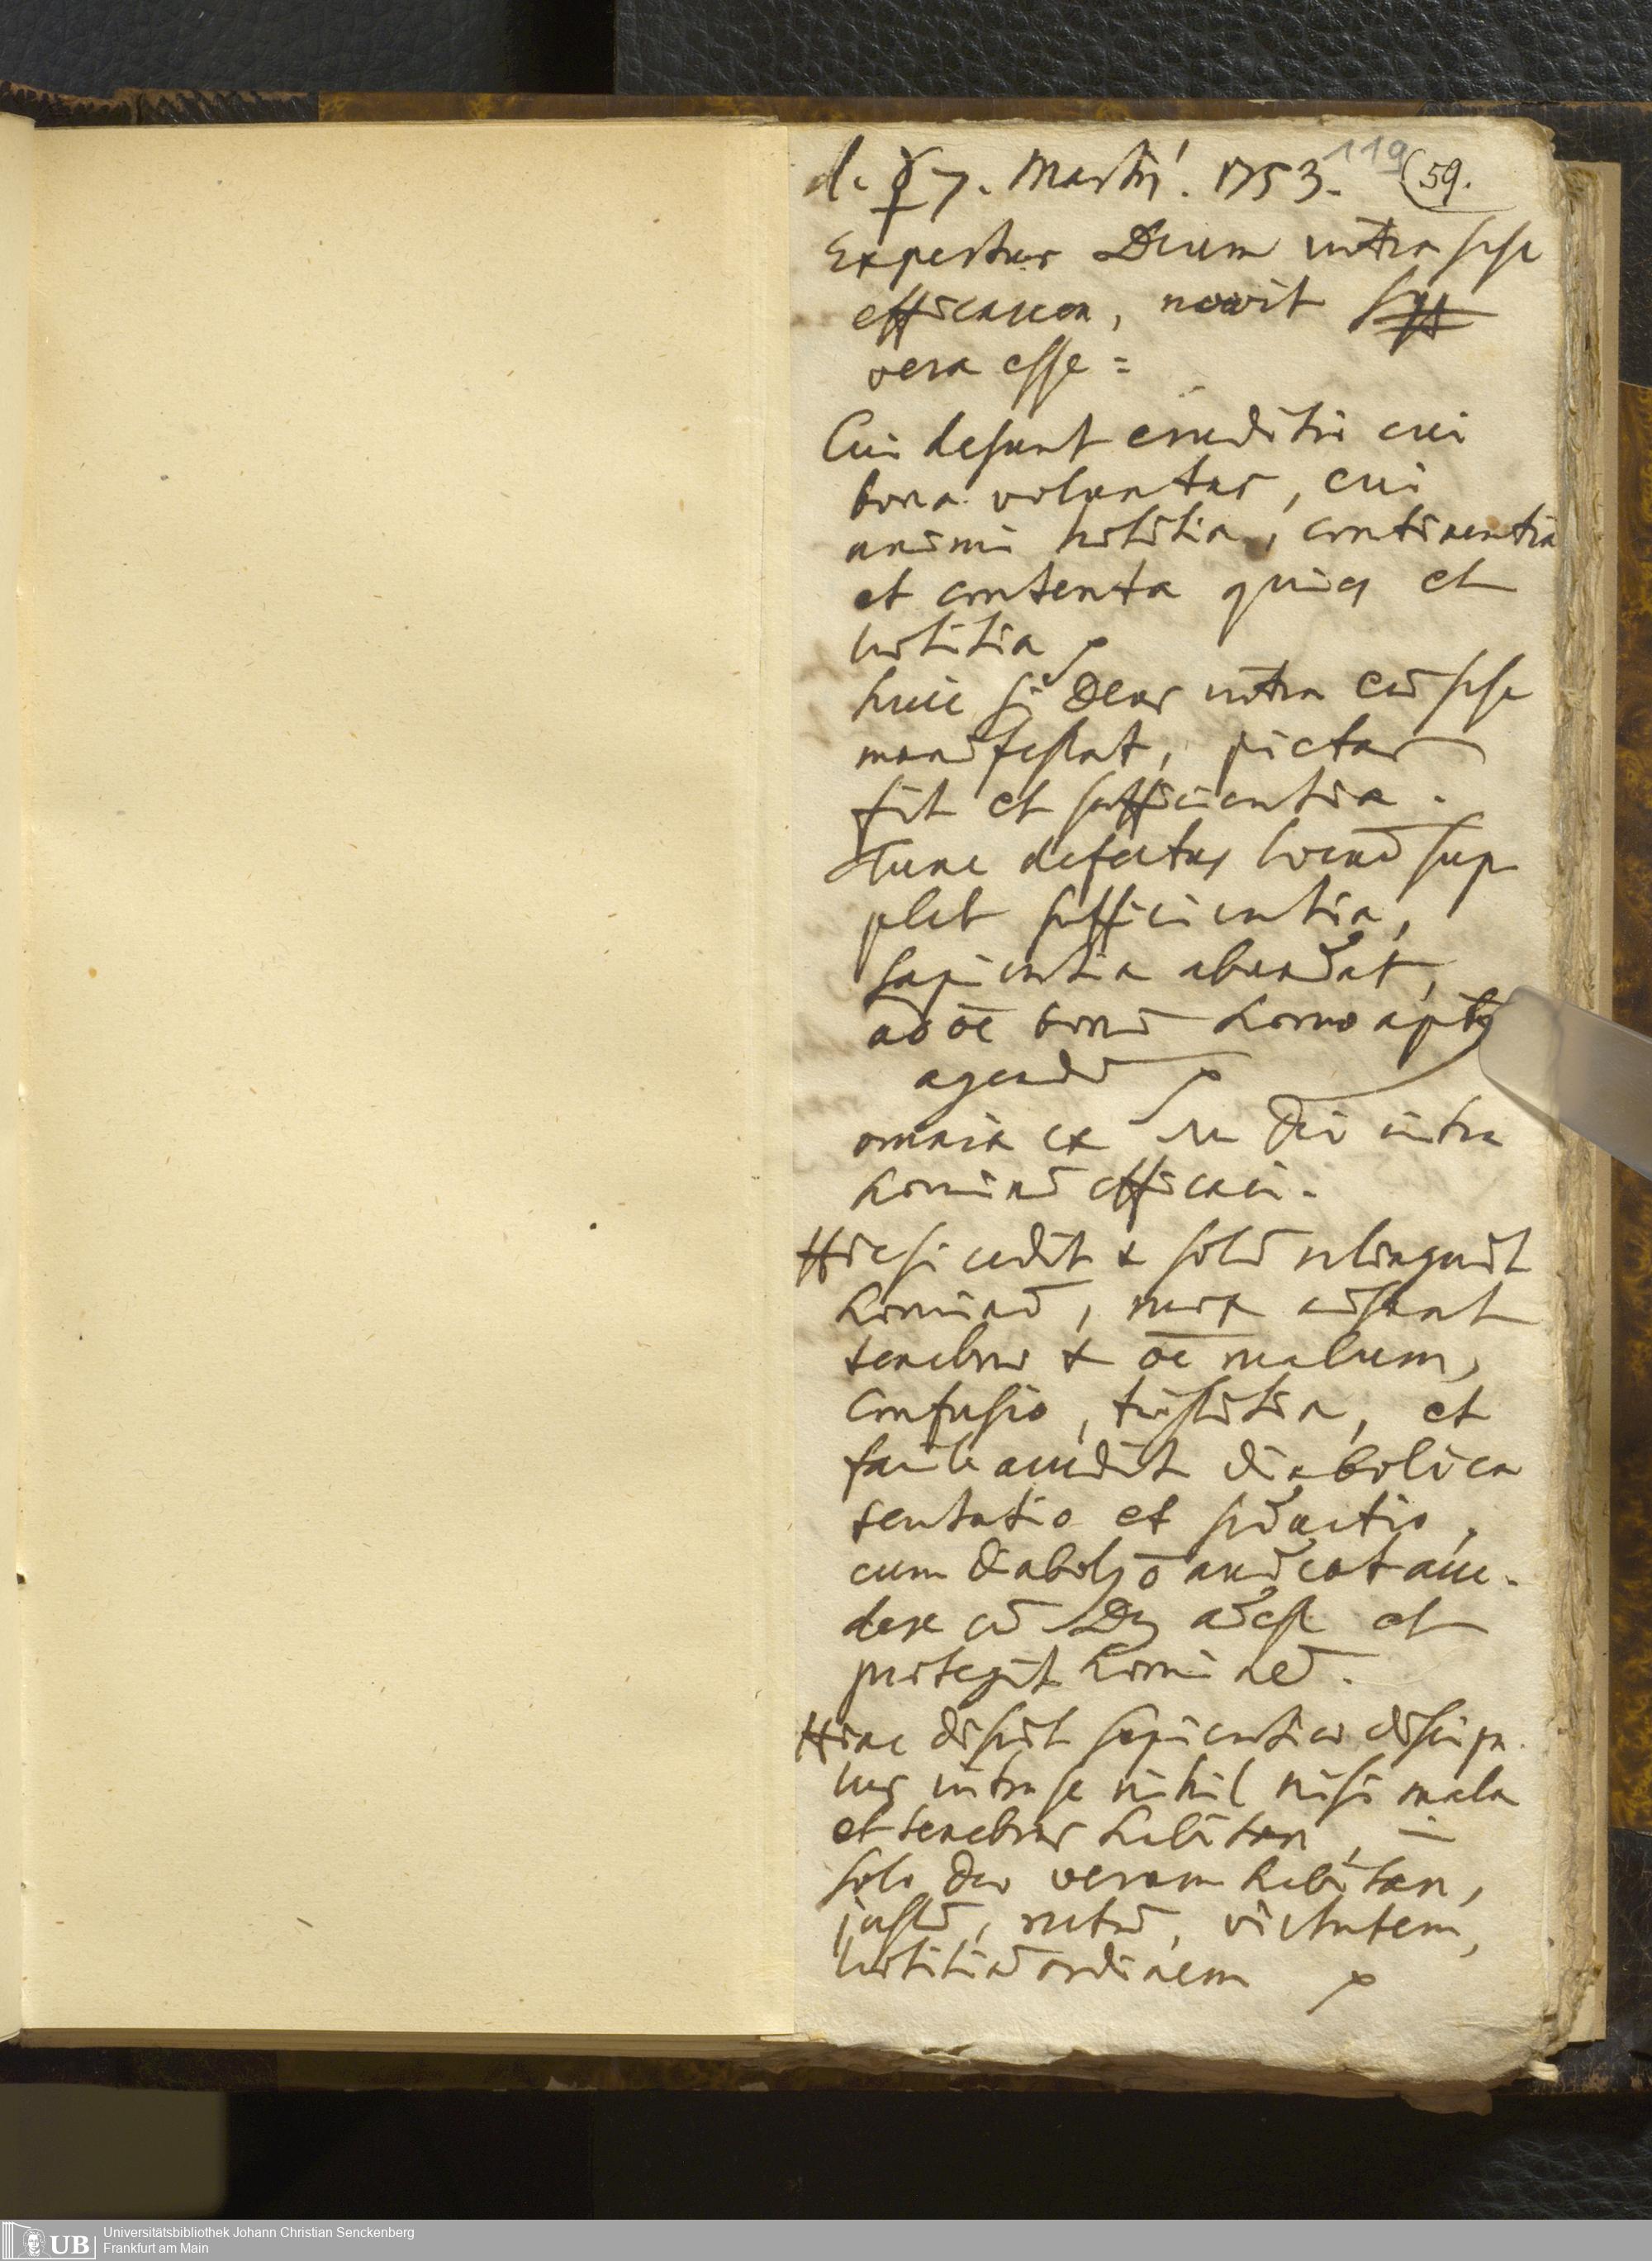 d. ☿ 7. Martij. 1753.
119
(59.
Expertus Deum intra sese
efficacem, novit
vera esse =
Cui desunt eruditio cui
bona voluntas, cui
animi lætitia, continentia
et contenta quies et
lætitia
huic si Deus intra eū sese
manifestat, pietas
fit et sufficientia.
Tunc defectus locum sup
plet sufficientia,
sapientia abundat,
ad oē bonū homo aptus
agendū
omnia ex Deo intra
hominē efficaci.
Hic si cedit & solū relinquit
hominē, mox adsunt
tenebræ & oē malum,
confusio, tristitia, et
facile accedit diabolica
tentatio et seductio,
cum diabolus ō audeat acce-
dere cū Ds adest et
protegit hominē.
Hinc discit sapientiæ discipu-
lus intra se nihil nisi mala
et tenebras habitare, in
solo Deo verum habitare,
justū, rectū, virtutem,
lætitiā ordinem
Universitätsbibliothek Johann Christian Senckenberg
Frankfurt am Main
UB